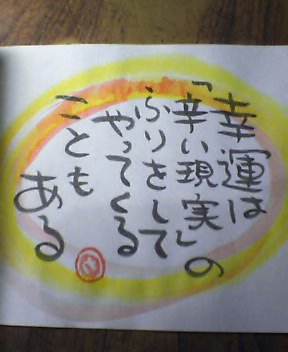 幸運は
「辛い現実」の
ふりをして
やってくる
ことも
ある